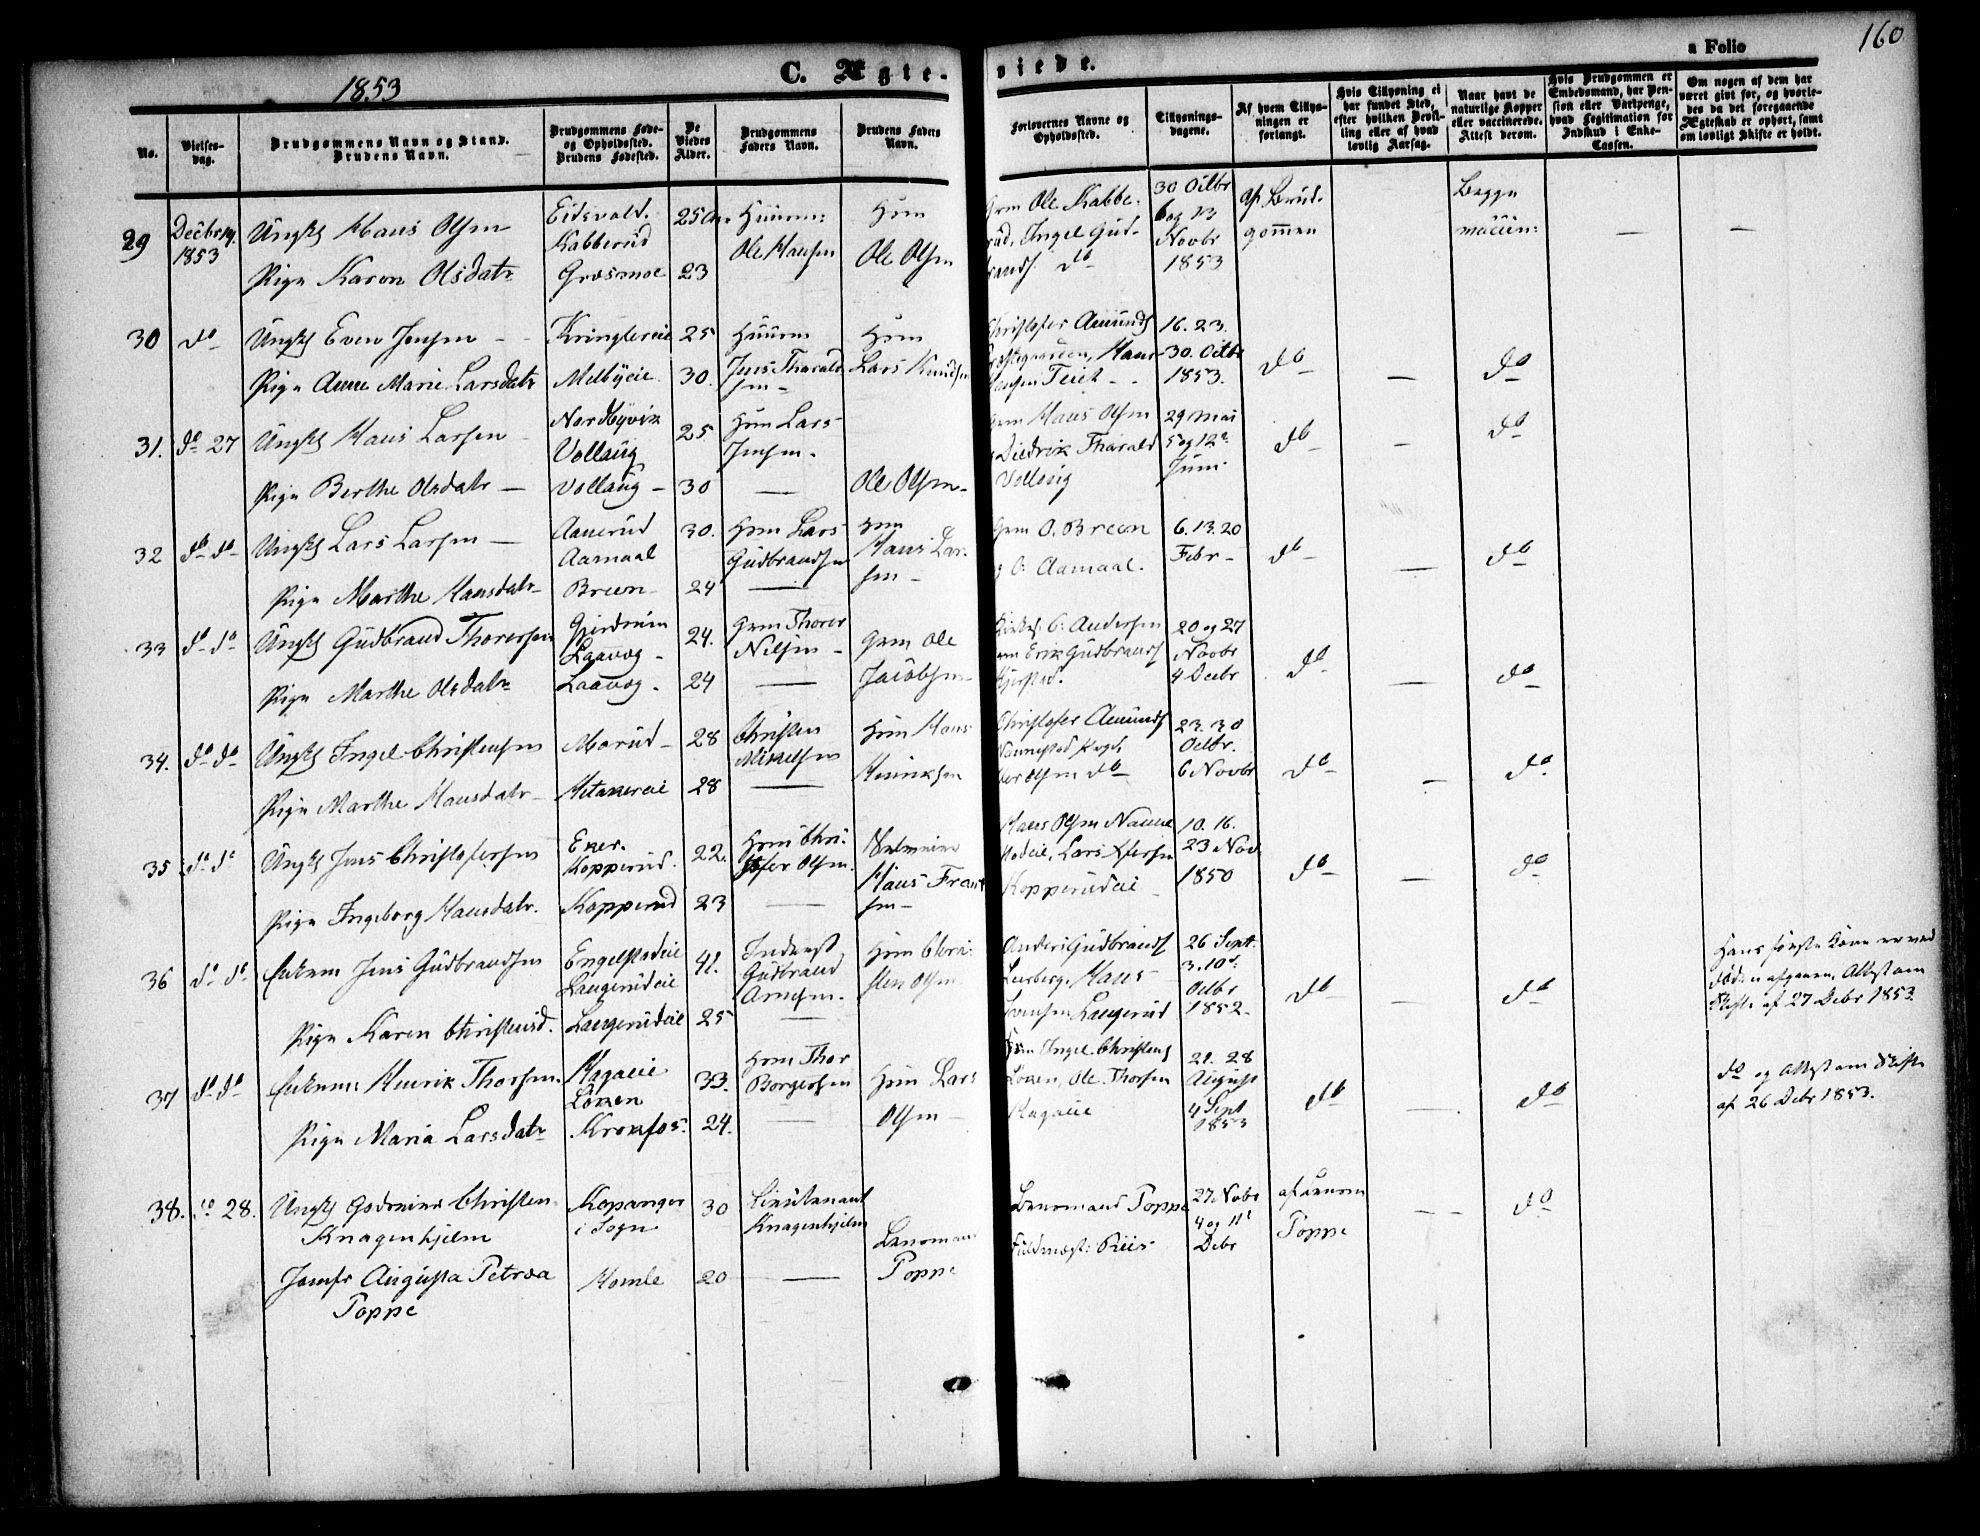 160
1853
C. Ægte-
viede.
a Folio
No.
Vielses-
dag.
Brudgommens Navn og Stand.
Brudens Navn.
Brudgommens Føde-
og Opholdssted.
Brudens Fødested.
De
Viedes
Alder.
Brudgommens
Faders Navn.
Brudens Faders
Navn.
Forlovernes Navne og
Opholdssted.
Tillysnings-
dagene.
Af hvem Tillys-
ningen er
forlangt.
Hvis Tillysning ei
har fundet Sted,
efter hvilken Bevil-
ling eller af hvad
lovlig Aarsag.
Naar havt de
naturlige Kopper
eller vaccinerede.
Attest derom.
Hvis Brudgommen er
Embedsmand, har Pen-
sion eller Vartpenge,
hvad Legitimation for
Indskud i Enke-
Cassen.
Om nogen af dem har
været gift før, og hvorle-
des da det foregaaende
Ægteskab er ophørt, samt
om lovligt Skifte er holdt.
29
Decbr 19.
1853
Ungk Hans Olsen
Pige Karen Olsdatr
Eidsvold.
Kabberud
Græsmoe
25
23
Ole Hansen
Huusm
Ole Olsen
Grm Ole Kabbe-
rud, Ingel Gud-
brands. do
30 Octbr
6 og 13
Novbr
1853
af Brud-
gommen
Begge
30
do
Ungk Even Jensen
Pige Anne Marie Larsdatr
Kringlereie
Melbyeie
25
30.
Huusm
Jens Tharald
sen
Hsm
Lars Knudsen
Christofer Amunds
Hansen Teiet
16. 23.
30. Octbr
1853.
do
do
31.
do 27
Ungk Hans Larsen
Pige Berthe Olsdatr
Nordbyvik
Vollaug
Vollaug
25
30
Hsm Lars
Jensen.
Ole Olsen
Grm Hans Olsen
Diedrik Tharald
Vollaug
29 Mai
5 og 12
Juni
do
do
32
do do
Ungk Lars Larsen
Pige Marthe Hansdatr
Aanerud
Aamaal
Breen
30.
24
Hsm Lars
Gudbrandsen
Hsm
Hans Lar-
sen
Grm O. Breen
og O. Aamaal.
6. 13. 20
Febr
do
do
33
do do
Ungk Gudbrand Thorersen
Pige Marthe Olsdatr
Laavog
Laavog.
24.
24
Grm Thorer
Nilsen
Grm Ole
Jacobsen
O. Andersen
Erik Gudbrands
20 og 27
Novbr
4 Decbr
do
do
34.
do do
Ungk Ingel Christensen
Pige Marthe Hansdatr
Morud
28
28
Christen
Mikelsen
Hsm Hans
Henriksen
Christofer Amunds
Nannestad
Olsen do
23. 30
Octbr.
6 Novbr
do
do
35
do do
Ungk Jens Christofersen
Pige Ingeborg Hansdatr.
Kopperud.
Kopperud
22.
23
Hsm Chri-
stofer Olsen
Hans Frant
sen
Hans Olsen Nanne
stadeie, Lars
Kopperudeie
10. 16.
23 Nov
1850
do
do
36
do do
Enkem Jens Gudbrandsen
Pige Karen Christensd.
Engelstadeie
Laugerudeie
Laugerudeie
41.
25
Inderst
Gudbrand
Arnesen.
Hsm Chri-
sten Olsen
Anders Gudbrands
Hans
Laugerud
26 Sept.
3. 10
Octbr
1852.
do
do
Hans første Kone er ved
Døden afgaaen, Attest om
Skifte af 27 Debr 1853.
37
do do
Enkem: Henrik Thorsen.
Pige Maria Larsdatr
Hagaeie
Løken
Krokfos.
33.
24.
Hsm Thor
Borgersen
Hsm Lars
Olsen
Hsm Ingel Christens
Løken, Ole Thorsen
Hagaeie
21. 28
August
4 Sept
1853
do
do
do og Attest om Skifte
af 26 Debr 1853.
38.
do 28.
Ungk Gadreier Christen
Knagenhjelm
Jomfr Augusta Petrea
Poppe
Kopanger
i Sogn
Homle
30
20
Lieutenant
Knagenhjelm
Lensmand
Poppe
Lensmand Poppe
Fuldmægt: Riis
27 Novbr
4 og 11
Debr
af
Poppe
do